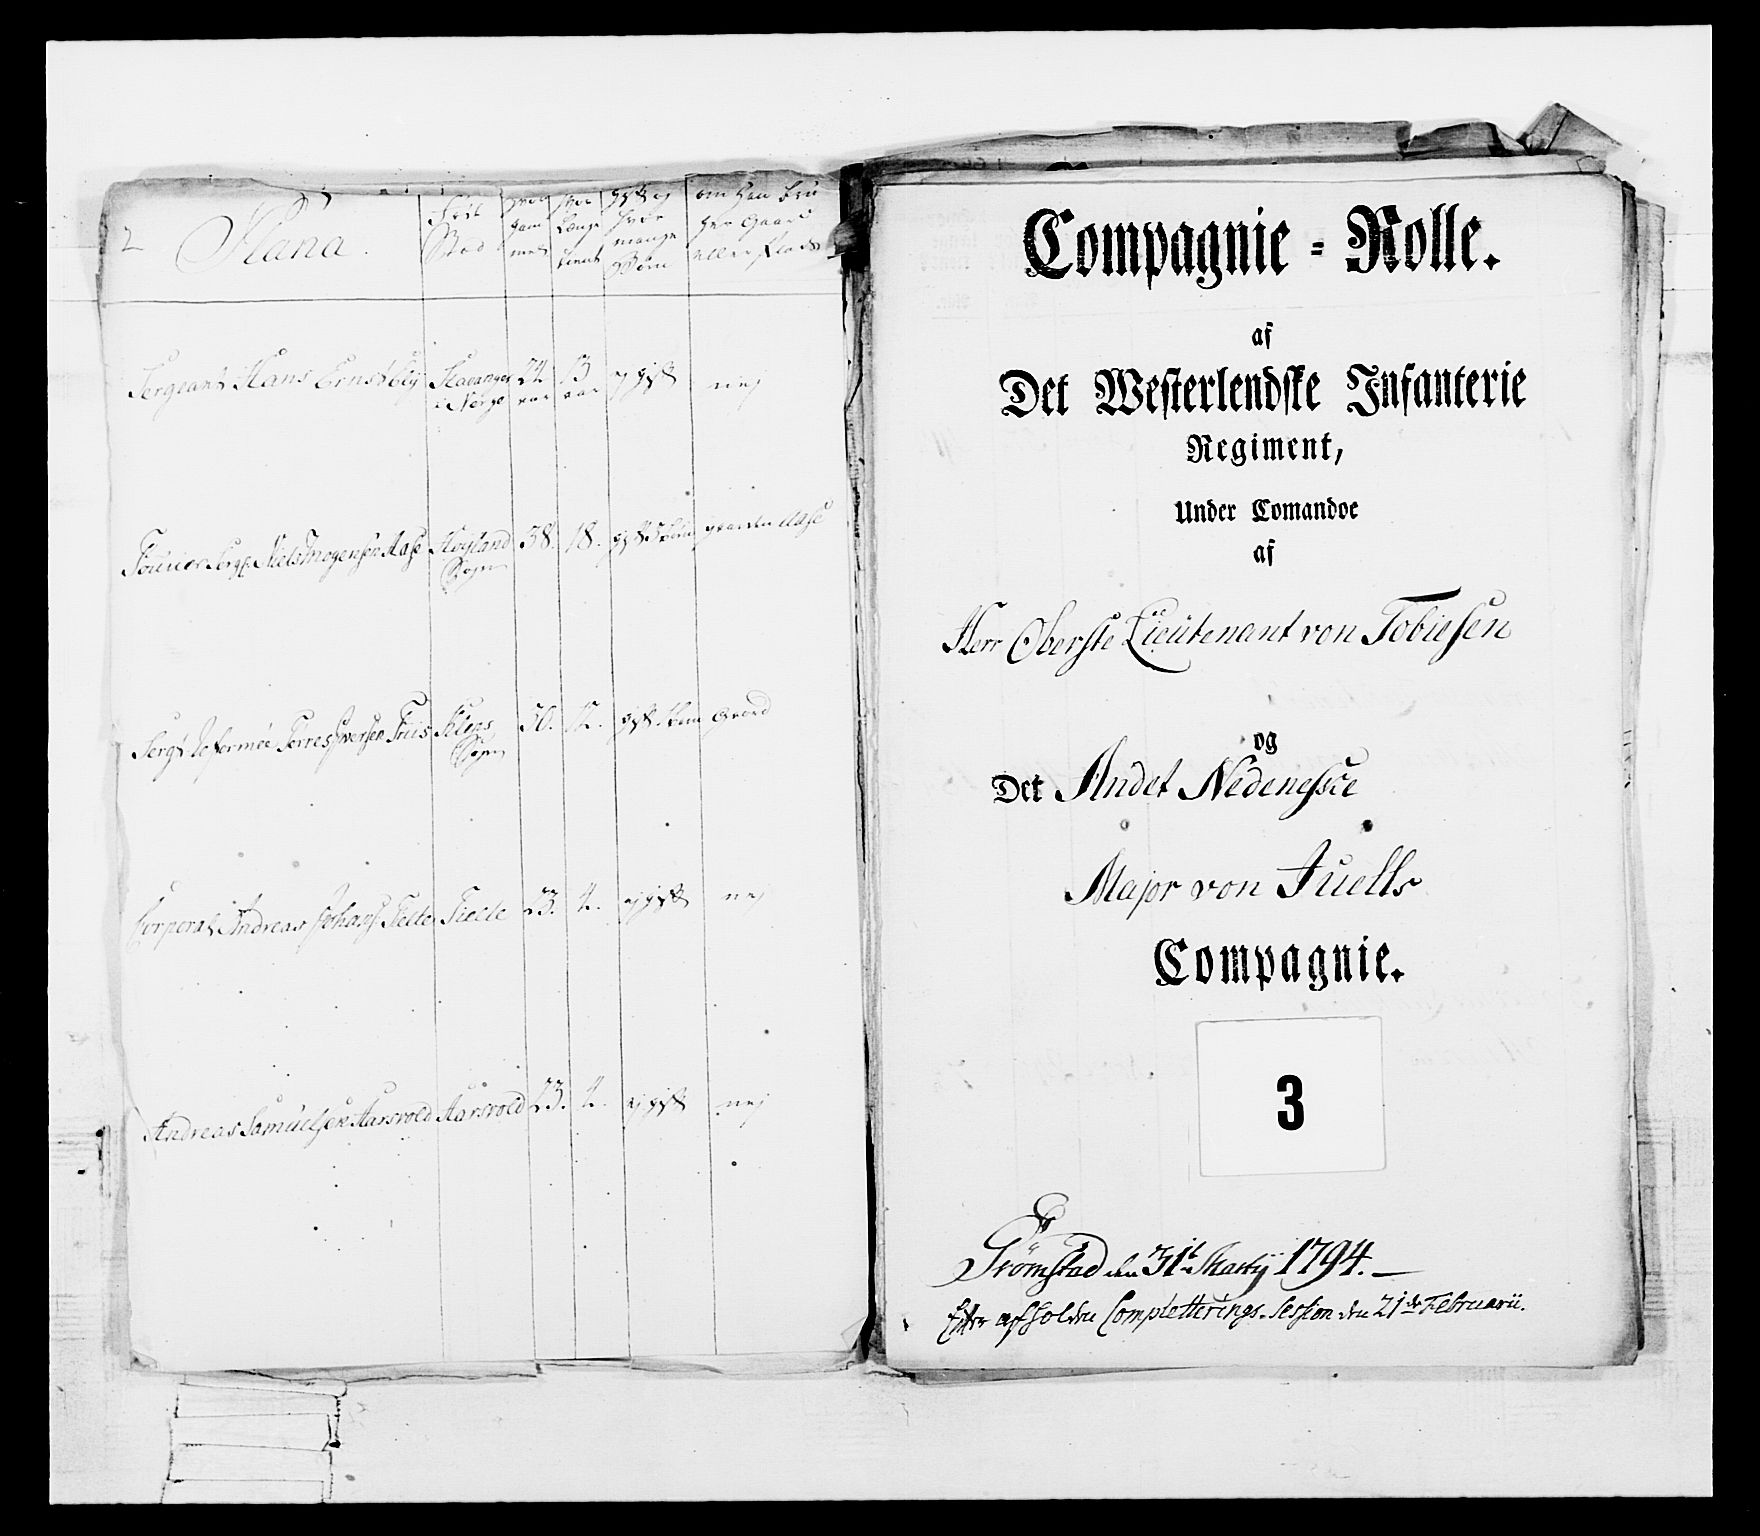 2
Nana.
Föde
Stad
hvor
gam
mel
hvor
Længe
tient
gift og
hvor
mange
Börn
om han bru
ger Gaard
eller Plads
Sergeant Hans Ernst Bly Stavanger i Norge 24 aar 13 aar ej gift nej
Fourier Sergt Niels Mogensen Aase Høyland Sogn 38. 18. gift 5 börn gaarden Aase
Sergt Reformée Torres Iversen Friis Kleps Sogn 30. 12. gift börn Gaard
Corporal Andreas Johans: Tielte Tielte 23. 4. ej gift nej
Andreas Samuelsen Aarsvold Aarsvold 23. 4. ej gift nej
Compagnie-Rolle.
af
Det Westerlendske Infanterie
Regiment,
Under Comandoe
af
Herr Oberste Lieutenant von Tobiesen
og
Det Andet Nedenesске
Major von Juells
Compagnie.
3
Trömstad den 31t Martij 1794.
Efter afholdne Completterings-Session den 21de Februarii.